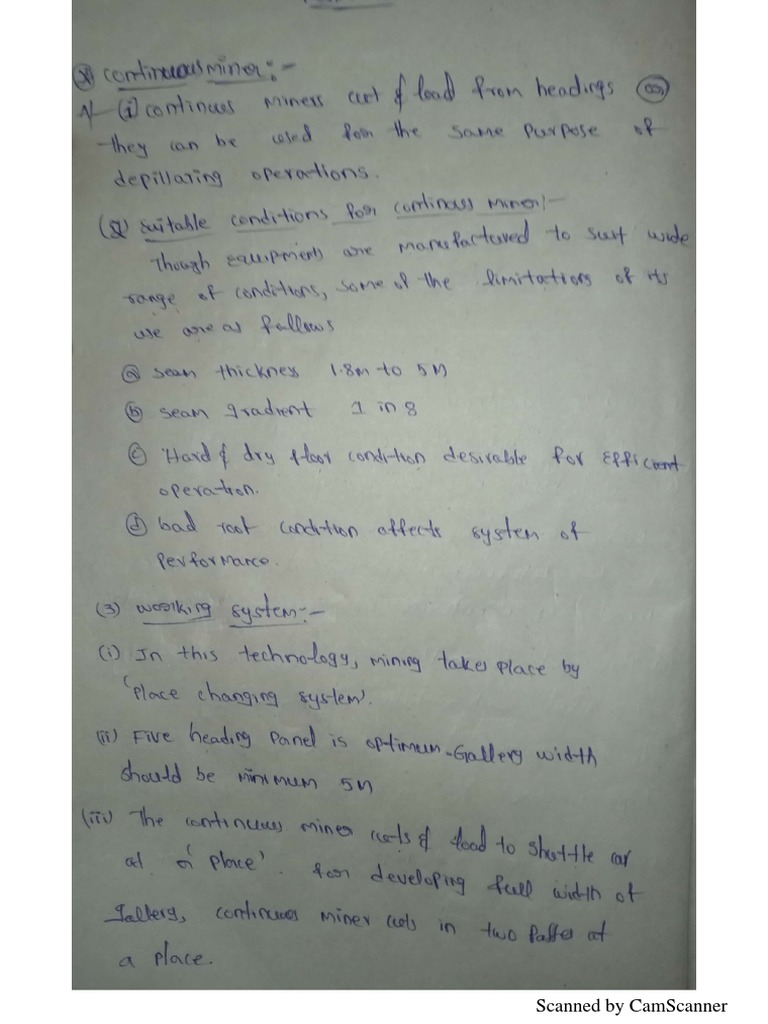 continuous miner :-
(i) continues miners cut & load from headings
they can be used for the same purpose of
depillaring operations.
suitable conditions for continous miner:-
Though equipments are manufactured to suit wide
range of conditions, some of the limitations of its
use are as follows
(a) seam thickness 1.8m to 5M
(b) seam gradient 1 in 8
(c) Hard & dry floor condition desirable for Efficient
operation.
(d) bad roof condition affects system of
performance.
(3) working system:-
(i) In this technology, mining takes place by
'place changing system'.
(ii) Five heading panel is optimum - Gallery width
should be minimum 5M
(iii) The continuous miner cuts & load to shuttle car
at a 'place'. for developing full width of
gallery, continuous miner cuts in two passes at
a place.
Scanned by CamScanner